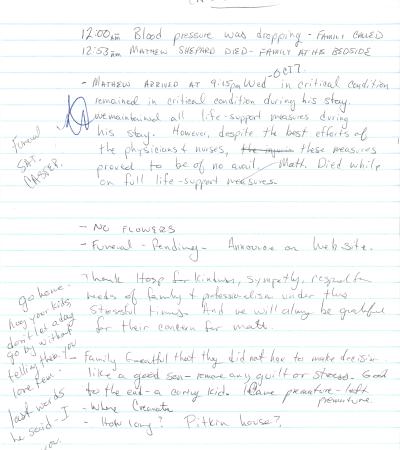 12:00am Blood pressure was dropping - FAMILY CALLED
12:53am MATHEW SHEPARD DIED - FAMILY AT HIS BEDSIDE
OCT 7
- MATHEW ARRIVED AT 9:15pm Wed in critical condition
remained in critical condition during his stay.
we maintained all life-support measures during
his stay. However, despite the best efforts of
the physicians & nurses, these measures
proved to be of no avail. Matt. Died while
on full life-support measures.
Funeral
SAT.
CASPER.
- NO FLOWERS
- Funeral - Pending - Announce on Web site.
Thank Hosp for kindness, sympathy, respect for
needs of family & professionalism under this
stressful time. And we will always be grateful
for their concern for matt.
- Family Grateful that they did not have to make decision
like a good son - remove any guilt or stress. Good
to the end - a caring kid. Came premature - left
premature.
- Where Cremate
- How long? Pitkin house?
go home.
hug your kids
don't let a day
go by without
telling them you
love them.
last words
he said - I
you.